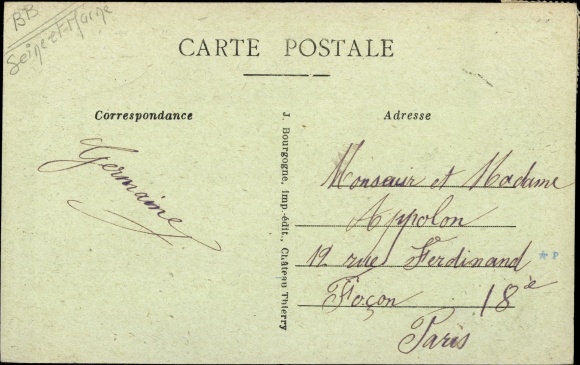 BB
Seine-et-Marne
CARTE POSTALE
Correspondance
Adresse
Germaine
J. Bourgogne, imp.-édit., Château Thierry
Monsieur et Madame
Appolon
12 rue Ferdinand
Foçon 18e
Paris
* P